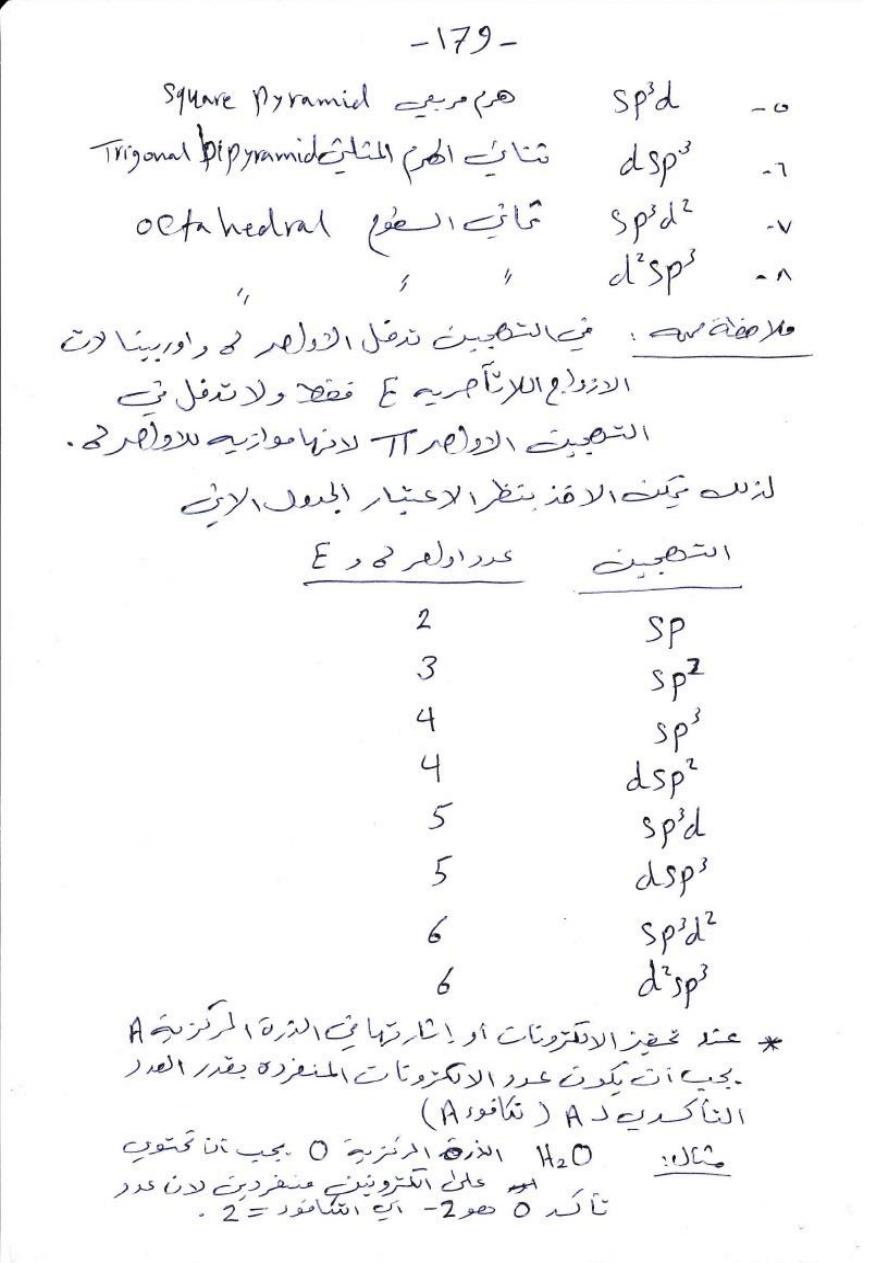 -179-
٥- sp³d هرم مربعي Square Pyramid
٦- dsp³ ثنائي الهرم المثلثي Trigonal bipyramid
٧- sp³d² ثماني السطوح octahedral
٨- d²sp³ 〃 〃 〃
ملاحظة مهمه : في التهجين تدخل الاواصر σ واوربيتالات
الازواج اللاتآصريه E فقط ولا تدخل في
التهجين الاواصر π لانها موازيه للاواصر σ.
لذلك يمكن الاخذ بنظر الاعتبار الجدول الاتي
التهجين عدد اواصر σ و E
sp 2
sp² 3
sp³ 4
dsp² 4
sp³d 5
dsp³ 5
sp³d² 6
d²sp³ 6
* عند تحفيز الالكترونات أو إثارتها في الذرة المركزية A
يجب أن يكون عدد الالكترونات المنفرده بقدر العدد
التأكسدي لـ A (تكافوء A)
مثال: H₂O الذرة المركزية O يجب أن تحتوي
على الكترونين منفردين لان عدد
تأكسد O هو 2- اي التكافوء = 2 .